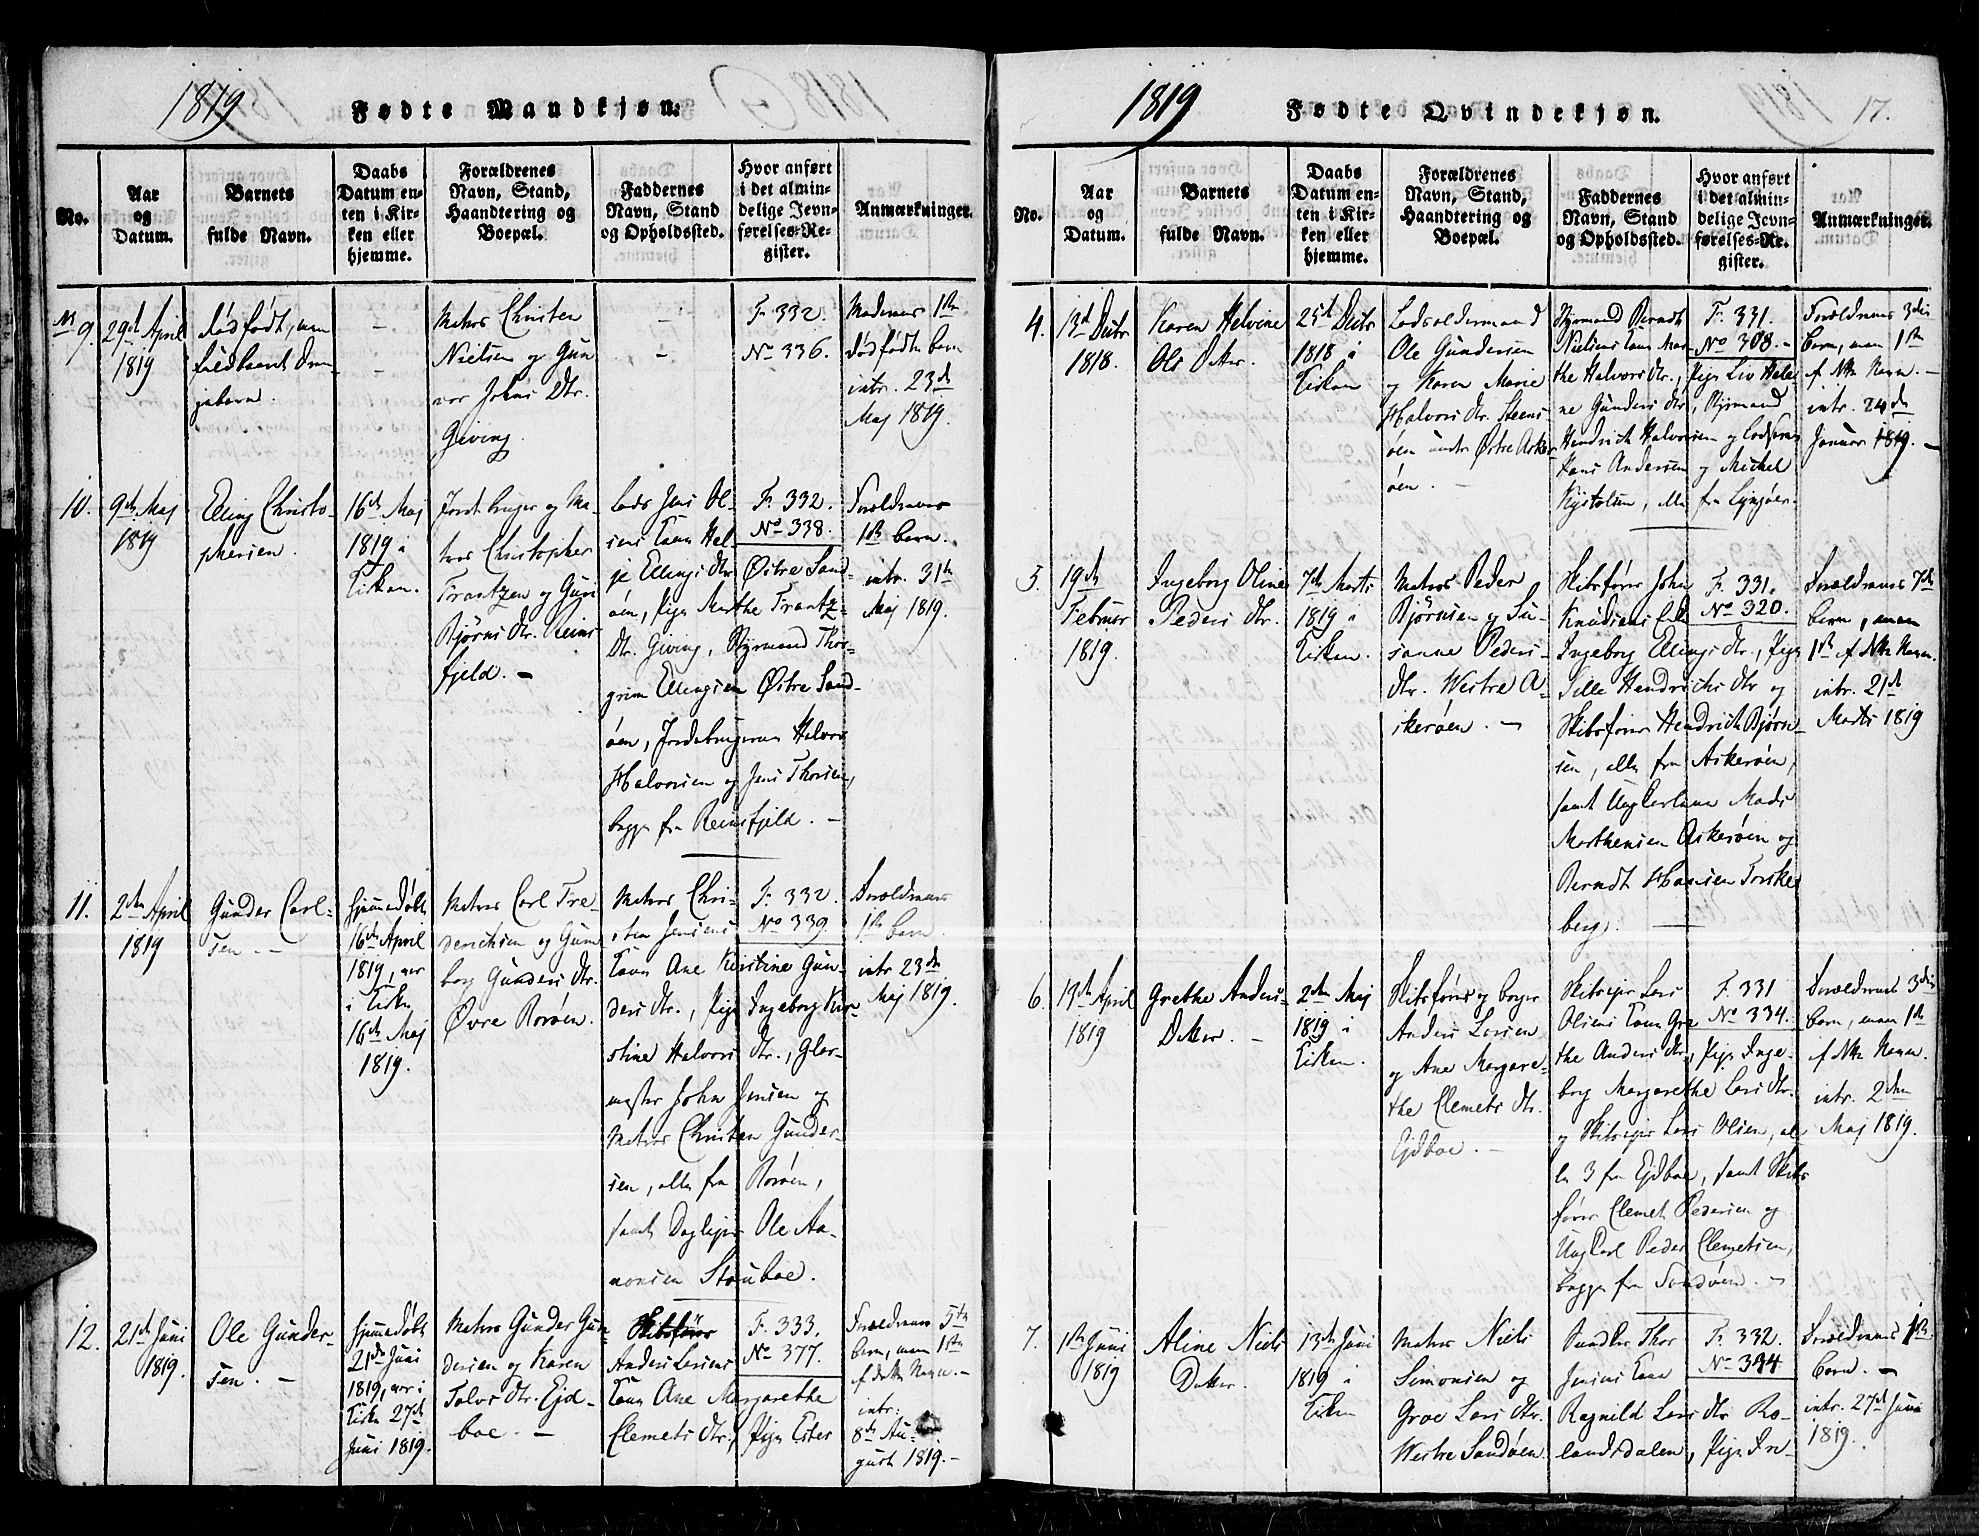 1819
Fødte Mandkjøn.
No.
Aar
og
Datum.
Barnets
fulde Navn.
Daabs
Datum en-
ten i Kir-
ken eller
hjemme.
Forældrenes
Navn, Stand,
Haandtering og
Boepæl.
Faddernes
Navn, Stand
og Opholdssted.
Hvor anført
i det almin-
delige Jevn-
førelses-Re-
gister.
Anmærkninger.
9.
29de April
1819
dødfødt,
-
Matros Christen
Nielsen og Gun
vor Johns Dtr.
Giving.
-
F. 332.
No 336.
1ste
dødfødte barn
intr. 23de
Maj 1819.
10.
9de Maj
1819
Elling Christo-
phersen.
16de Maj
1819 i
Kirken.
Jordbruger og Ma-
tros Christopher
Frantzen og Guri
Bjørns Dtr. Reins-
fjeld. -
Lods Jens Ol-
sens Kone Hel-
je Ellings Dtr. Østre Sand-
øen, Pige Marthe Frantz-
Dtr. Giving, Styrmand Thor-
grim Ellingsen Østre Sand-
øen, Jordbrugerne Halvor
Halvorsen og Jens Thorsen,
begge fra Reinsfjeld. -
F. 332.
No 338.
Forældrenes
1ste barn.
intr. 31te
Maj 1819.
11.
2den April
1819
Gunder Carl-
sen. -
hjemmedøbt
16de April
1819, var
i Kirken
16de Maj
1819.
Matros Carl Fre-
derichsen og Gun-
bor Gunders Dtr.
Øvre Rorøen.
Matros Chri-
sten Jensens
Kone Ane Kirstine Gun-
ders Dtr., Pige Ingeborg Kir-
stine Halvors Dtr., Glar-
mester John Jensen og
Matros Christen Gunder-
sen, alle fra Rorøen,
samt Daglejer Ole Aa-
nonsen Stauboe.
F. 332.
No 339.
Forældrenes
1ste barn.
intr 23de
Maj 1819.
12.
21de Juni
1819.
Ole Gunder-
sen. -
hjemmedøbt
21de Juni
1819, var i
Kirken 27de
Juni 1819.
Matros Gunder Gun-
dersen og Karen
Talvs Dtr. Ejd-
boe. -
Skibsfører
Anders Larsens
Kone Ane Margarethe
Clemets Dtr., Pige Ester
F. 333.
No 377.
Forældrenes 5te
barn, men 1ste
af dette Navn. -
intr:
8de Au-
gust 1819. -
1819
Fødte Qvindekjøn.
17.
No.
Aar
og
Datum.
Barnets
fulde Navn.
Daabs
Datum en-
ten i Kir-
ken eller
hjemme.
Forældrenes
Navn, Stand,
Haandtering og
Boepæl.
Faddernes
Navn, Stand
og Opholdssted.
Hvor anført
i det almin-
delige Jevn-
førelses-Re-
gister.
Anmærkninger.
4.
13de Decbr
1818.
Karen Helvine
Ols Datter.
25de Decbr
1818 i
Kirken
Lodsoldermand
Ole Gundersen
og Karen Marie
Halvors Dtr. Steens-
øen under Østre Asker-
øen. -
Styrmand Berndt
Nielsens Kone Mar-
the Halvors Dtr., Pige Liv Hele-
ne Gunders Dtr, Styrmand
Hendrich Halvorsen og Lods
Hans Andersen og Michel
alle fra Lyngøer.
F. 331.
No 308. -
Forældrenes 3die
barn, men 1ste
af dette Navn. -
intr. 24de
Januar 1819. -
5.
19de
Februar
1819.
Ingeborg Oline
Peders Dtr.
7de Marts
1819 i
Kirken.
Matros Peder
Bjørnsen og Su-
sanne Peders
Dtr. Westre A-
skerøen. -
Skibsfører John
Knudsens
Ingeborg Ellings Dtr., Pige
Sille Hendrichs Dtr og
Skibsfører Hendrich Bjørn-
sen, alle fra Askerøen,
samt Ungkarlene Mads
Morthensen Askerøen og
Berndt Hansen Torske-
berg. -
F. 331.
No 320.
Forældrenes 7de
barn, men
1ste af dette Navn.
intr. 21de
Marts 1819
6.
13de April
1819
Grethe Anders
Datter. -
2den Maj
1819 i
Kirken.
Skibsfører og borger
Anders Larsen
og Ane Margare-
the Clemets Dtr.
Ejdboe. -
Skibsejer Lars
Olsens Kone Gre-
the Anders Dtr, Pige Inge-
borg Margarethe Lars Dtr.
og Skibsejer Lars Olsen, al-
le 3 fra Ejdboe, samt Skibs-
fører Clemet Pedersen og
Ungkarl Peder Clemetsen,
begge fra Sandøen. -
F. 331
No 334.
Forældrenes 3die
barn, men 1ste
af dette Navn.
intr. 2den
Maj 1819.
7.
1ste Juni
1819
Aline Niels
Datter.
13de Juni
1819 i
Kirken
Matros Niels
Simonsen og
Groe Lars Dtr.
Westre Sandøen.
Thor
Jensens Kone
Ragnild Lars Dtr Ro-
landsdalen, Pige
F. 332.
No 344
Forældrenes 1ste
barn. -
intr. 27de Juni
1819.